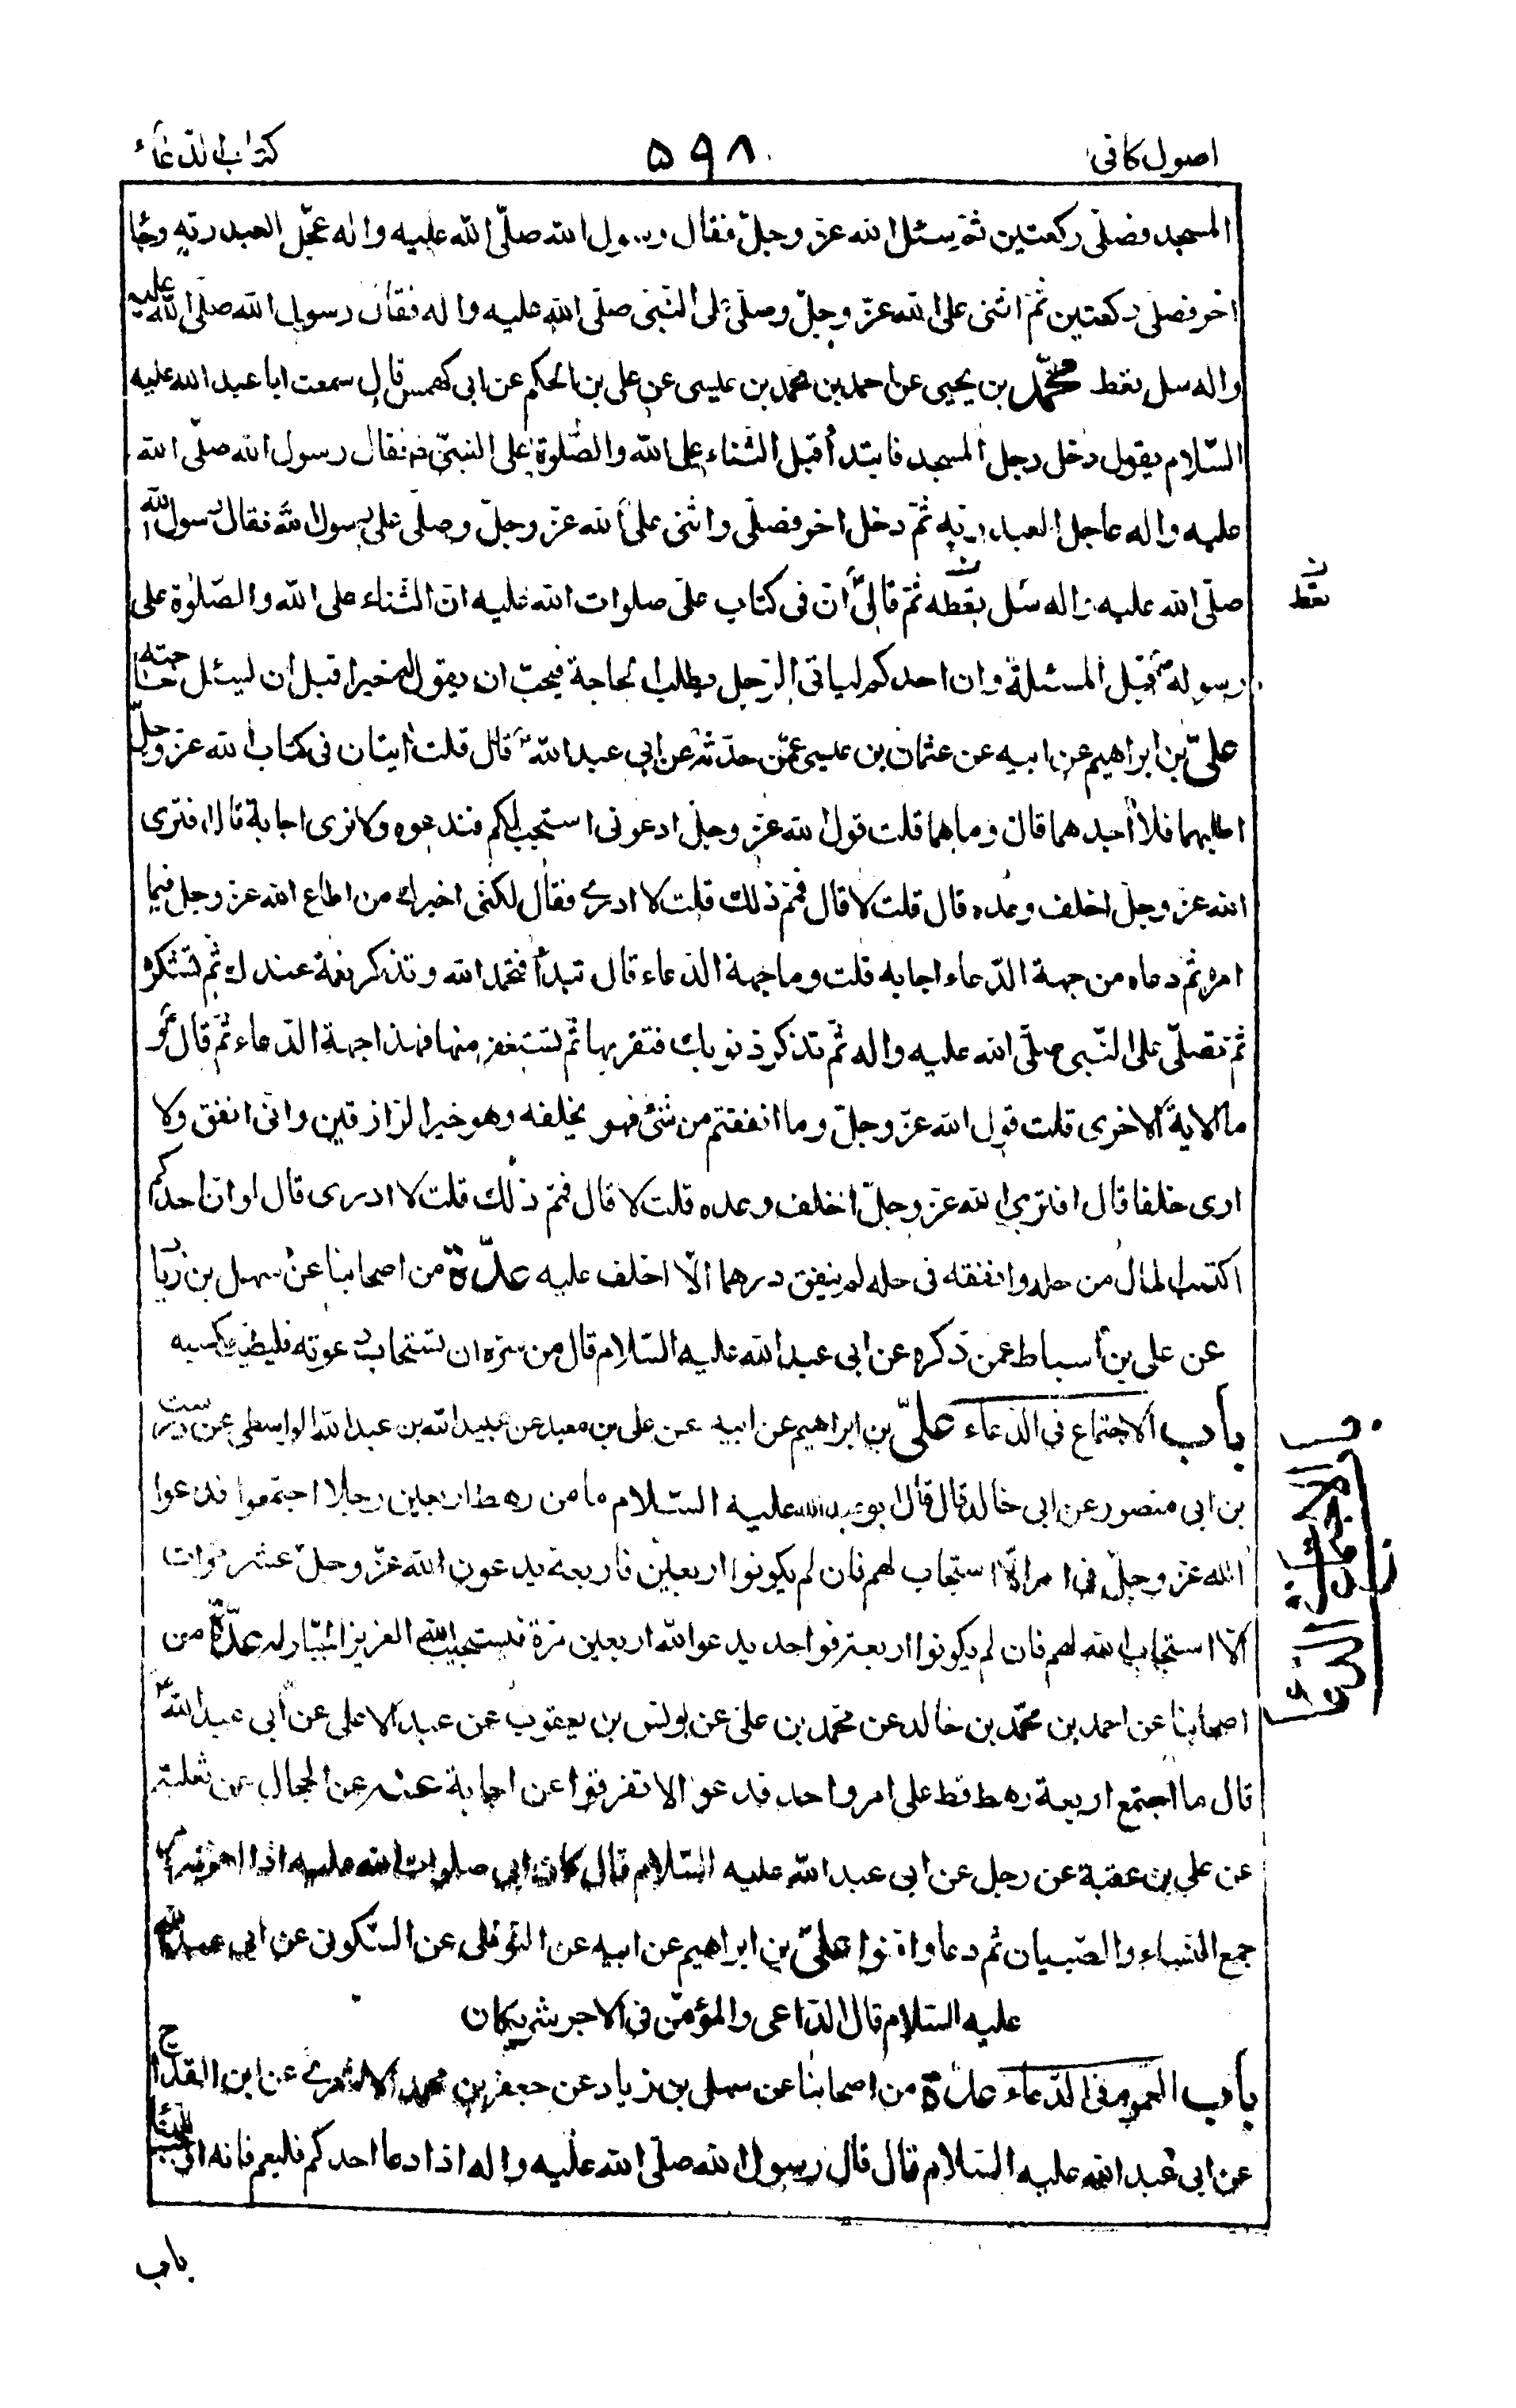 اصول كافى
۵۹۸
كتاب الدعاء
المسجد فصلّى ركعتين ثمّ سئل الله عزّ وجلّ فقال رسول الله صلّى الله عليه واله عجّل العبد ربّه وجاء
اخر فصلّى ركعتين ثمّ اثنى على الله عزّ وجلّ وصلّى على النّبىّ صلّى الله عليه واله فقال رسول الله صلّى الله عليه
واله سل تعط محمّد بن يحيى عن احمد بن محمد بن عيسى عن على بن الحكم عن ابى كهمس قال سمعت ابا عبد الله عليه
السّلام يقول دخل رجل المسجد فابتدأ قبل الثّناء على الله والصّلوة على النبىّ ص فقال رسول الله صلّى الله
عليه واله عاجل العبد ربّه ثمّ دخل اخر فصلّى واثنى على الله عزّ وجلّ وصلّى على رسول الله فقال رسول الله
صلّى الله عليه واله سل تعطه ثمّ قال انّ فى كتاب علىّ صلوات الله عليه انّ الثّناء على الله والصّلوة على
تعط
رسوله قبل المسئلة وان احدكم لياتى الرّجل يطلب الحاجة فيحبّ ان يقول له خيرا قبل ان يسئل حاجته
علىّ بن ابراهيم عن ابيه عن عثمان بن عيسى عمّن حدّثه عن ابى عبد الله ع قال قلت ايتان فى كتاب الله عزّ وجلّ
اطلبهما فلا اجدهما قال وما هما قلت قول الله عزّ وجلّ ادعونى استجب لكم فندعوه ولا نرى اجابة قال افترى
الله عزّ وجلّ اخلف وعده قال قلت لا قال فممّ ذلك قلت لا ادرى فقال لكنّى اخبرك من اطاع الله عزّ وجلّ فيما
امره ثمّ دعاه من جهة الدّعاء اجابه قلت وما جهة الدّعاء قال تبدأ فتحمد الله وتذكر نعمه عندك ثمّ تشكره
ثمّ تصلّى على النّبى صلّى الله عليه واله ثمّ تذكر ذنوبك فتقرّ بها ثمّ تستغفر منها فهذا جهة الدّعاء ثمّ قال و
ما الاية الاخرى قلت قول الله عزّ وجلّ وما انفقتم من شئ فهو يخلفه وهو خير الرّازقين وانّى انفق ولا
ارى خلفا قال افترى الله عزّ وجلّ اخلف وعده قلت لا قال فممّ ذلك قلت لا ادرى قال لو انّ احدكم
اكتسب المال من حلّه وانفقه فى حله لم ينفق درهما الّا اخلف عليه عدّة من اصحابنا عن سهل بن زياد
عن على بن أسباط عمن ذكره عن ابى عبد الله عليه السّلام قال من سرّه ان تستجاب دعوته فليطب مكسبه
باب الاجتماع فى الدّعاء علىّ بن ابراهيم عن ابيه عن على بن معبد عن عبيد الله بن عبد الله الواسطى عن درست
بن ابى منصور عن ابى خالد قال قال ابو عبد الله عليه السّلام ما من رهط اربعين رجلا اجتمعوا فدعوا
الله عزّ وجلّ فى امر الّا استجاب لهم فان لم يكونوا اربعين فاربعة يدعون الله عزّ وجلّ عشر مرّات
الّا استجاب الله لهم فان لم يكونوا اربعة فواحد يدعو الله اربعين مرّة فيستجيب الله العزيز الجبّار له عدّة من
اصحابنا عن احمد بن محمّد بن خالد عن محمّد بن علىّ عن يونس بن يعقوب عن عبد الاعلى عن ابى عبد الله ع
قال ما اجتمع اربعة رهط قط على امر واحد فدعوا الا تفرقوا عن اجابة عنه عن الحجال عن ثعلبة
عن على بن عقبة عن رجل عن ابى عبد الله عليه السّلام قال كان ابى صلوات الله عليه اذا احزنه امر
جمع النّساء والصّبيان ثم دعا وامّنوا علىّ بن ابراهيم عن ابيه عن النّوفلى عن السّكونى عن ابى عبد الله
عليه السّلام قال الدّاعى والمؤمّن فى الاجر شريكان
باب العموم فى الدّعاء عدّة من اصحابنا عن سهل بن زياد عن جعفر بن محمد الاشعرى عن ابن القدّاح
عن ابى عبد الله عليه السّلام قال قال رسول الله صلّى الله عليه واله اذا دعا احدكم فليعم فانه
باب